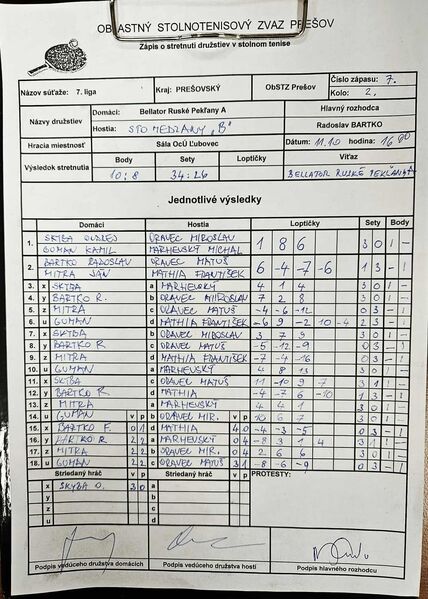 OBLASTNÝ STOLNOTENISOVÝ ZVAZ PREŠOV
Zápis o stretnutí družstiev v stolnom tenise
Názov súťaže: 7. liga Kraj: PREŠOVSKÝ ObSTZ Prešov Číslo zápasu: 7.
Kolo: 2.
Názvy družstiev Domáci: Bellator Ruské Pekľany A Hlavný rozhodca
Hostia: STO MEDZANY "B" Radoslav BARTKO
Hracia miestnosť Sála OcÚ Ľubovec Dátum: 11.10 hodina: 16 00
Výsledok stretnutia Body Sety Loptičky Víťaz
10:8 34:26 BELLATOR RUSKÉ PEKĽANY A
Jednotlivé výsledky
Domáci Hostia Loptičky Sety Body
1. SKYBA ONDREJ ORAVEC MIROSLAV 1 8 6 3 0 1 -
GUMAN KAMIL MARHEVSKÝ MICHAL
2. BARTKO RADOSLAV ORAVEC MATUŠ 6 -4 -7 -6 1 3 - 1
MITRA JÁN MATHIA FRANTIŠEK
3. x SKYBA a MARHEVSKÝ 4 1 4 3 0 1 -
4. y BARTKO R. b ORAVEC MIROSLAV 7 2 8 3 0 1 -
5. z MITRA c ORAVEC MATUŠ -4 -6 -12 0 3 - 1
6. u GUMAN d MATHIA FRANTIŠEK -6 9 -2 10 -4 2 3 - 1
7. x SKYBA b ORAVEC MIROSLAV 3 7 9 3 0 1 -
8. y BARTKO R c ORAVEC MATUŠ -5 -12 -9 0 3 - 1
9. z MITRA d MATHIA FRANTIŠEK -7 -4 -16 0 3 - 1
10. u GUMAN a MARHEVSKÝ 4 8 13 3 0 1 -
11. x SKYBA c ORAVEC MATUŠ 11 -10 9 7 3 1 1 -
12. y BARTKO R d MATHIA -4 7 -6 -10 1 3 - 1
13. z MITRA a MARHEVSKÝ 4 4 1 3 0 1 -
14. u GUMAN v p b ORAVEC MIR. v p 10 6 7 3 0 1 -
15. x BARTKO F. 0 1 d MATHIA 4 0 -4 -3 -5 0 3 - 1
16. y BARTKO R 2 2 a MARHEVSKÝ 0 4 -8 3 1 4 3 1 1 -
17. z MITRA 2 2 b ORAVEC MIR. 0 4 2 6 6 3 0 1 -
18. u GUMAN 2 2 c ORAVEC MATUŠ 3 1 -8 -6 -9 0 3 - 1
Striedaný hráč v p Striedaný hráč v p PROTESTY:
x SKYBA O. 3 0 a
y b
z c
u d
Podpis vedúceho družstva domácich Podpis vedúceho družstva hostí Podpis hlavného rozhodcu